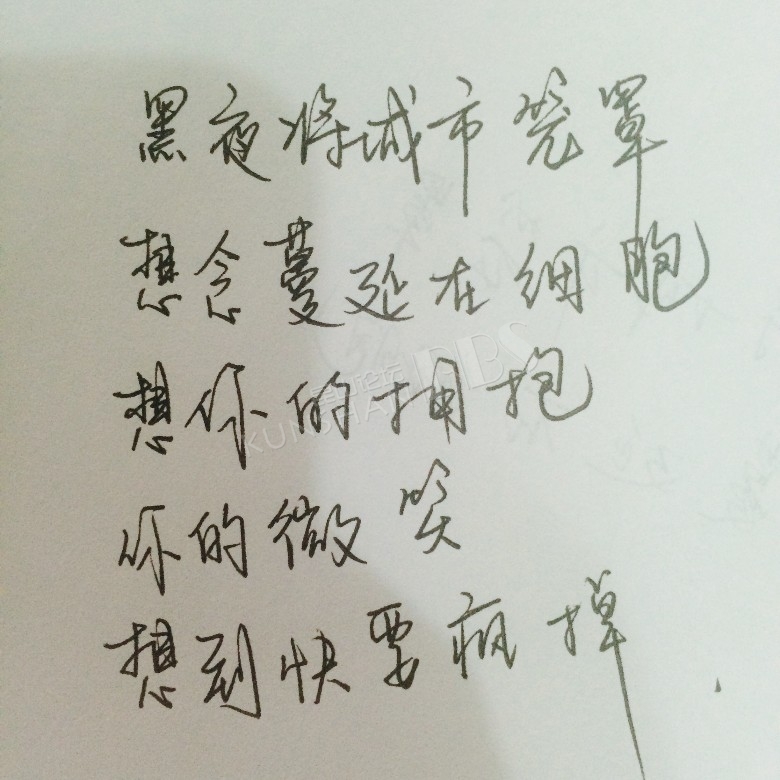 黑夜将城市笼罩
想念蔓延在细胞
想你的拥抱
你的微笑
想到快要疯掉